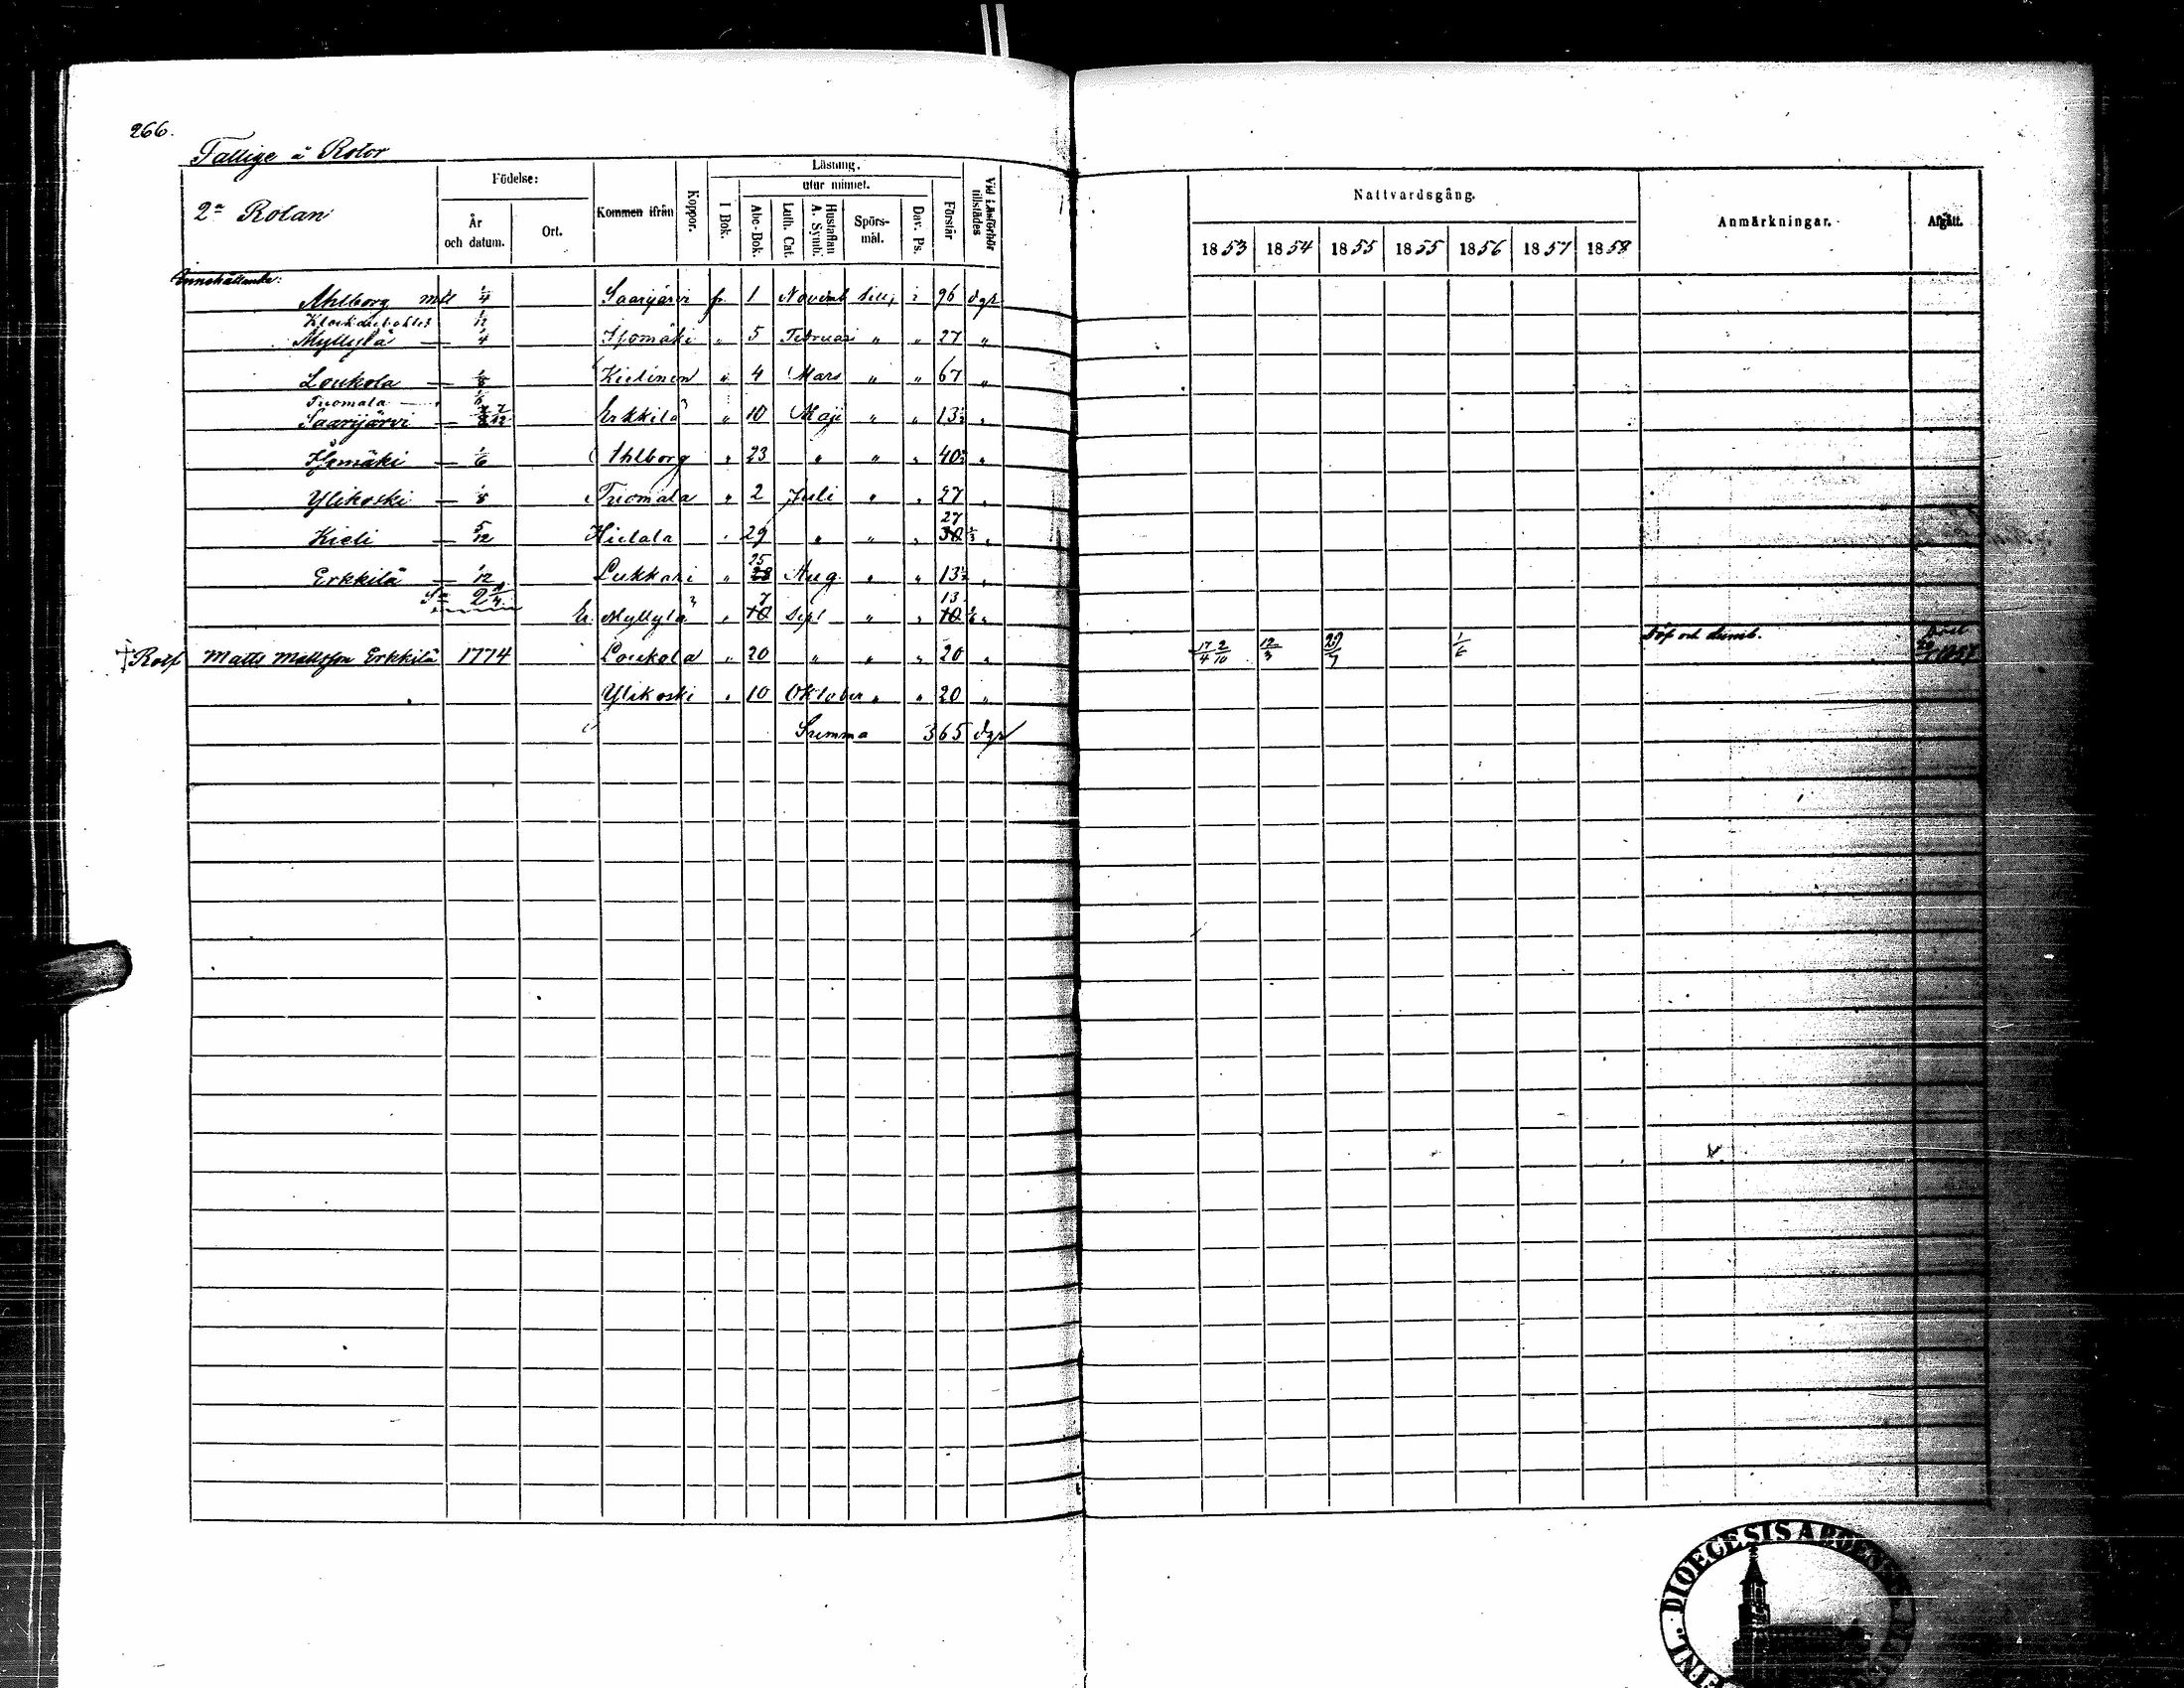 266.
Fattige å Rotor
2a Rotan
Födelse:
År och datum.
Ort.
Kommen ifrån
Koppor.
Läsning.
I Bok.
utur minnet.
Abc-Bok.
Luth. Cat.
Hustaflan A. Symb.
Spörs-mål.
Dav. Ps.
Förstår
Vid Läsförhör tillstädes
Nattvardsgång.
1853 1854 1855 1855 1856 1857 1858
Anmärkningar.
Afgått.
Ahlborg mtl 1/4 Saarijärvi fr. 1 Novemb till 96 dgr
1/12
Myllylä — 1/4 Ilomäki " 5 Februari " " 27 "
Loukola — 1/8 Kielinen " 4 Mars " " 67 "
Tuomala — 1/6
Saarijärvi — 7/12 Erkkilä " 10 Maji " " 13½ "
Ilomäki — 1/6 Ahlborg " 23 " " " 40½ "
Ylikoski — 1/8 Tuomala " 2 Juli " " 27 "
27
Kieli — 5/12 Hietala " 29 " " " 30 "
25
Erkkilä — 1/12 Lukkari " 28 Aug. " " 13½ "
7 13
Myllylä " 10 Sept " " 10 "
† Rotf Matts Mattsson Erkkilä 1774 Loukola " 20 " " " 20 " 17/4 2/10 12/3 29/7 1/6 Döf och dumb. död 1857
Ylikoski " 10 Oktober " " 20 "
Summa 365 dgr
DIOECESIS ABOENSIS